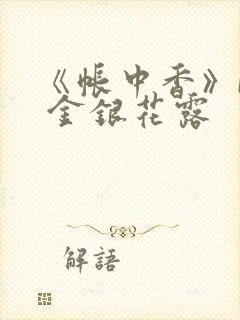 《帳中香》
金銀花露
解語